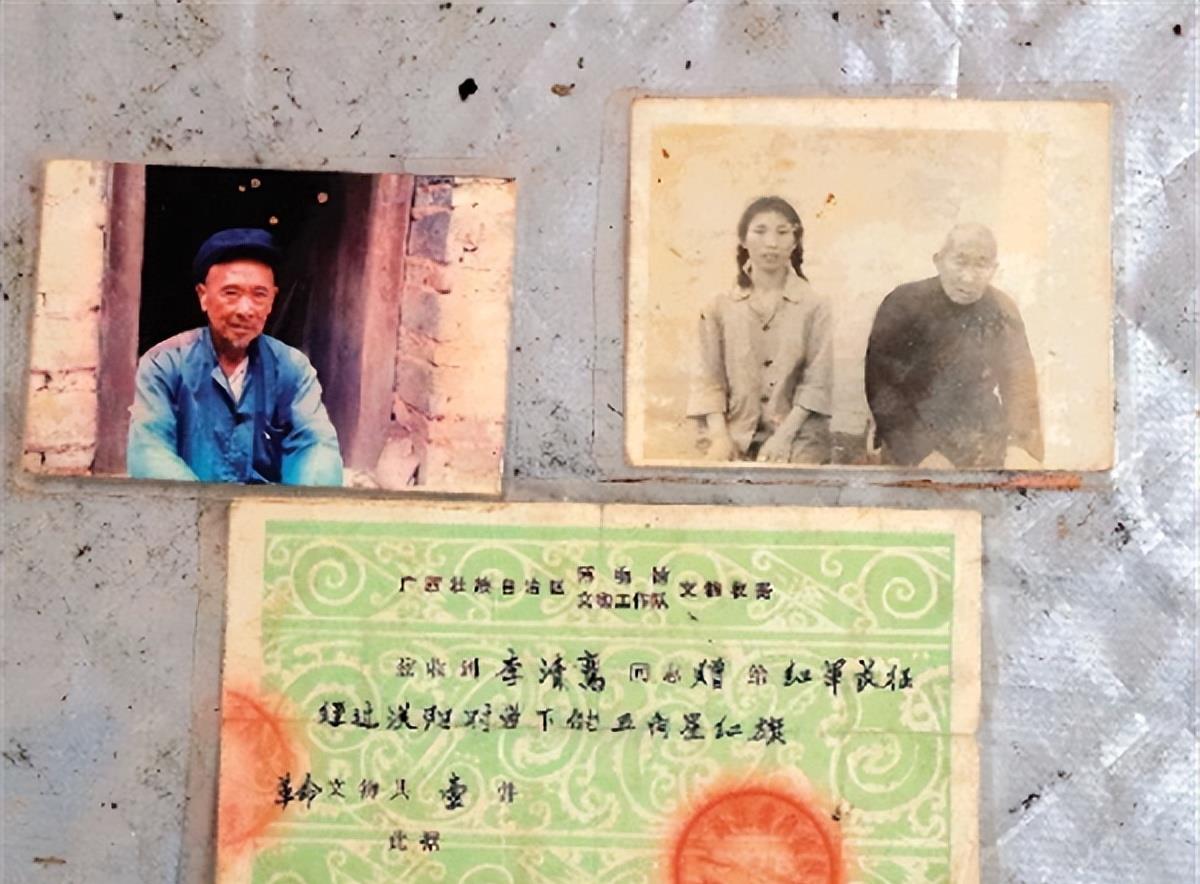 广西壮族自治区 博物馆 文物工作队 文物收据
兹收到 李清鸾 同志赠给 红军长征
经过 时留下的五角星红旗
革命文物共 壹 件
此据